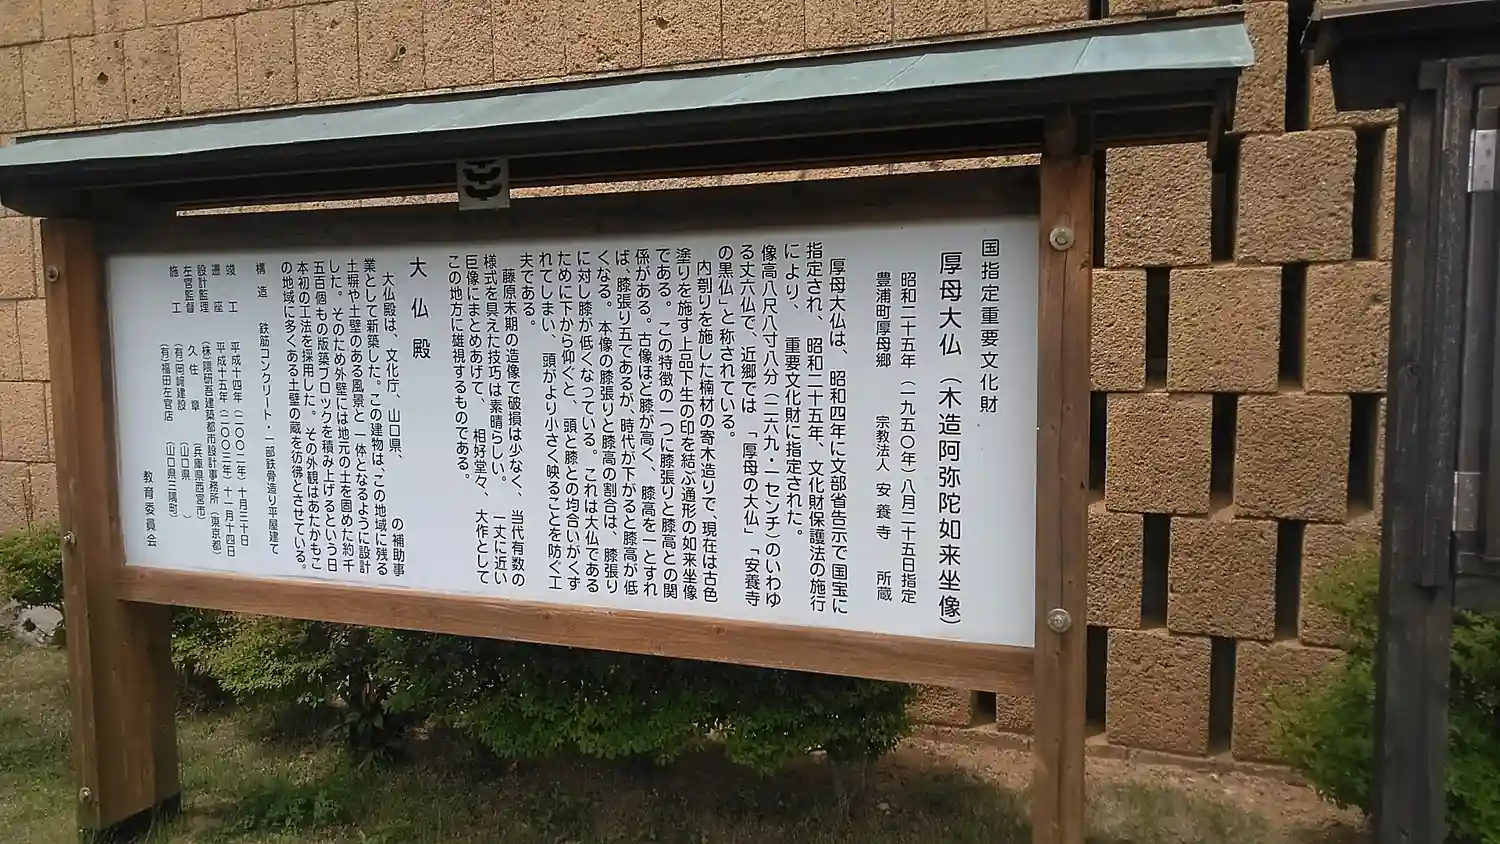 国指定重要文化財
厚母大仏（木造阿弥陀如来坐像）
昭和二十五年（一九五〇年）八月二十五日指定
豊浦町厚母郷　宗教法人　安養寺　所蔵
厚母大仏は、昭和四年に文部省告示で国宝に
指定され、昭和二十五年、文化財保護法の施行
により、重要文化財に指定された。
像高八尺八寸八分（二六九・一センチ）のいわゆ
る丈六仏で、近郷では「厚母の大仏」「安養寺
の黒仏」と称されている。
内刳りを施した楠材の寄木造りで、現在は古色
塗りを施す上品下生の印を結ぶ通形の如来坐像
である。この特徴の一つに膝張りと膝高との関
係がある。古像ほど膝が高く、膝高を一とすれ
ば、膝張り五であるが、時代が下がると膝高が低
くなる。本像の膝張りと膝高の割合は、膝張り
に対し膝が低くなっている。これは大仏である
ために下から仰ぐと、頭と膝との均合いがくず
れてしまい、頭がより小さく映ることを防ぐ工
夫である。
藤原末期の造像で破損は少なく、当代有数の
様式を具えた技巧は素晴らしい。一丈に近い
巨像にまとめあげて、相好堂々、大作として
この地方に雄視するものである。
大仏殿
大仏殿は、文化庁、山口県、の補助事
業として新築した。この建物は、この地域に残る
土塀や土壁のある風景と一体となるように設計
した。そのため外壁には地元の土を固めた約千
五百個もの版築ブロックを積み上げるという日
本初の工法を採用した。その外観はあたかもこ
の地域に多くある土壁の蔵を彷彿とさせている。
構造　鉄筋コンクリート・一部鉄骨造り平屋建て
竣工　平成十四年（二〇〇二年）十月三十日
遷座　平成十五年（二〇〇三年）十一月十四日
設計監理　（株）隈研吾建築都市設計事務所（東京都）
左官監督　久住　章　（兵庫県西宮市）
施工　（有）岡﨑建設　（山口県　）
（有）福田左官店　（山口県三隅町）
教育委員会